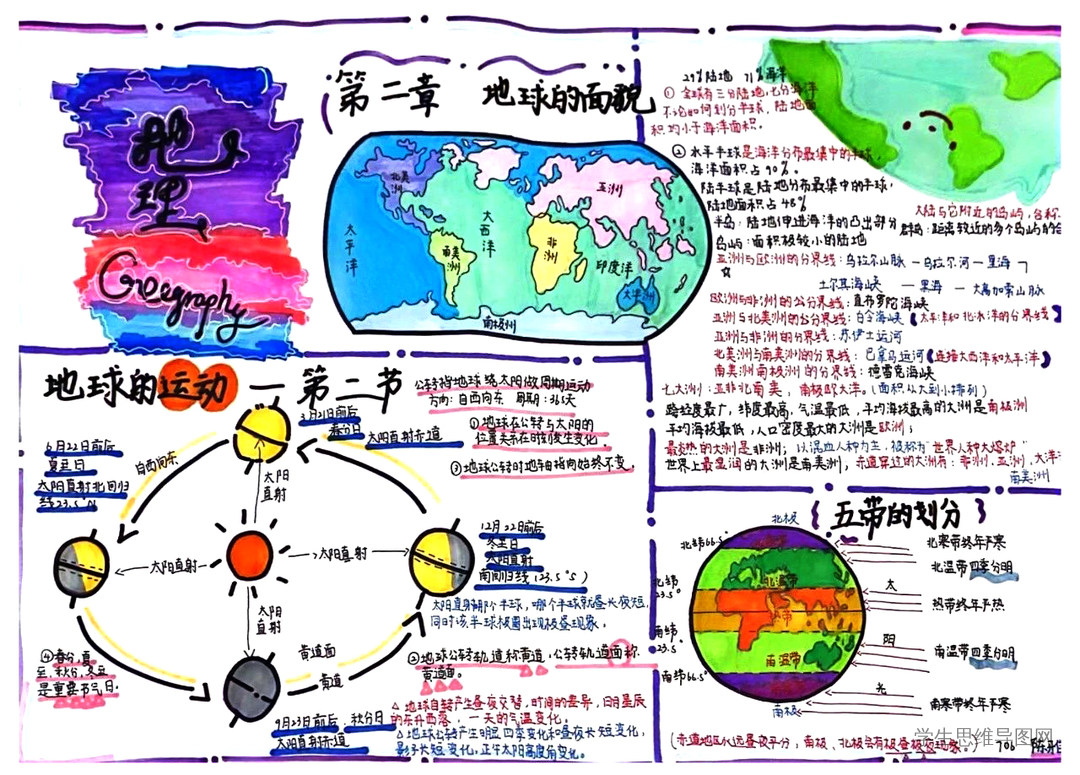 地理
Geography
第二章 地球的面貌
北美洲
亚洲
太平洋
大西洋
南美洲
非洲
印度洋
大洋洲
南极州
29%陆地 71%海洋
① 全球有三分陆地,七分海洋
不论如何划分半球,陆地面
积均小于海洋面积。
② 水平半球是海洋分布最集中的半球,
海洋面积占90%。
陆半球是陆地分布最集中的半球,
陆地面积占48%
半岛:陆地伸进海洋的凸出部分
岛屿:面积极较小的陆地
大陆与它附近的岛屿,合称
群岛:距离较近的多个岛屿的合
亚洲与欧洲的分界线:乌拉尔山脉—乌拉尔河—里海
土尔其海峡 — 黑海 — 大高加索山脉
欧洲与非洲的分界线:直布罗陀海峡
亚洲与北美洲的分界线:白令海峡【太平洋和北冰洋的分界线】
亚洲与非洲的分界线:苏伊士运河
北美洲与南美洲的分界线:巴拿马运河【连接大西洋和太平洋】
南美洲南极洲的分界线:德雷克海峡
七大洲:亚非北南美,南极欧大洋。(面积从大到小排列)
跨经度最广,纬度最高,气温最低,平均海拔最高的大洲是南极洲
平均海拔最低,人口密度最大的大洲是欧洲;
最炎热的大洲是非洲;以混血人种为主,被称为“世界人种大熔炉”
世界上最湿润的大洲是南美洲;赤道穿过的大洲有:非洲、亚洲、大洋
南美洲
地球的运动—第二节
公转指地球绕太阳做周期运动
方向:自西向东 周期:365天
①地球在公转与太阳的
位置关系在时刻发生变化
③地球公转时地轴指向始终不变。
3月21日前后
春分日
太阳直射赤道
6月22日前后
夏至日
太阳直射北回归
线23.5°N
自西向东
太阳直射
太阳直射
太阳直射
太阳直射
12月22日前后
冬至日
太阳直射
南回归线(23.5°S)
太阳直射哪个半球,哪个半球就昼长夜短,
同时该半球极圈出现极昼现象。
④春分,夏
至,秋分,冬至
是重要节气日.
黄道面
黄道
②地球公转轨道称黄道,公转轨道面称
黄道面。
9月23日前后,秋分日
太阳直射赤道
△地球自转产生昼夜交替,时间的差异,日月星辰
的东升西落,一天的气温变化。
△地球公转产生明显四季变化和昼夜长短变化,
影子长短变化,正午太阳高度角变化。
{五带的划分}
北极
北纬66.5°
北纬
23.5°
南纬
23.5°
南纬66.5°
南极
北温带
热带
南温带
太
阳
光
北寒带终年严寒
北温带四季分明
热带终年严热
南温带四季分明
南寒带终年严寒
(赤道地区永远昼夜平分,南极、北极会有极昼极夜现象。)
706
学生思维导图网